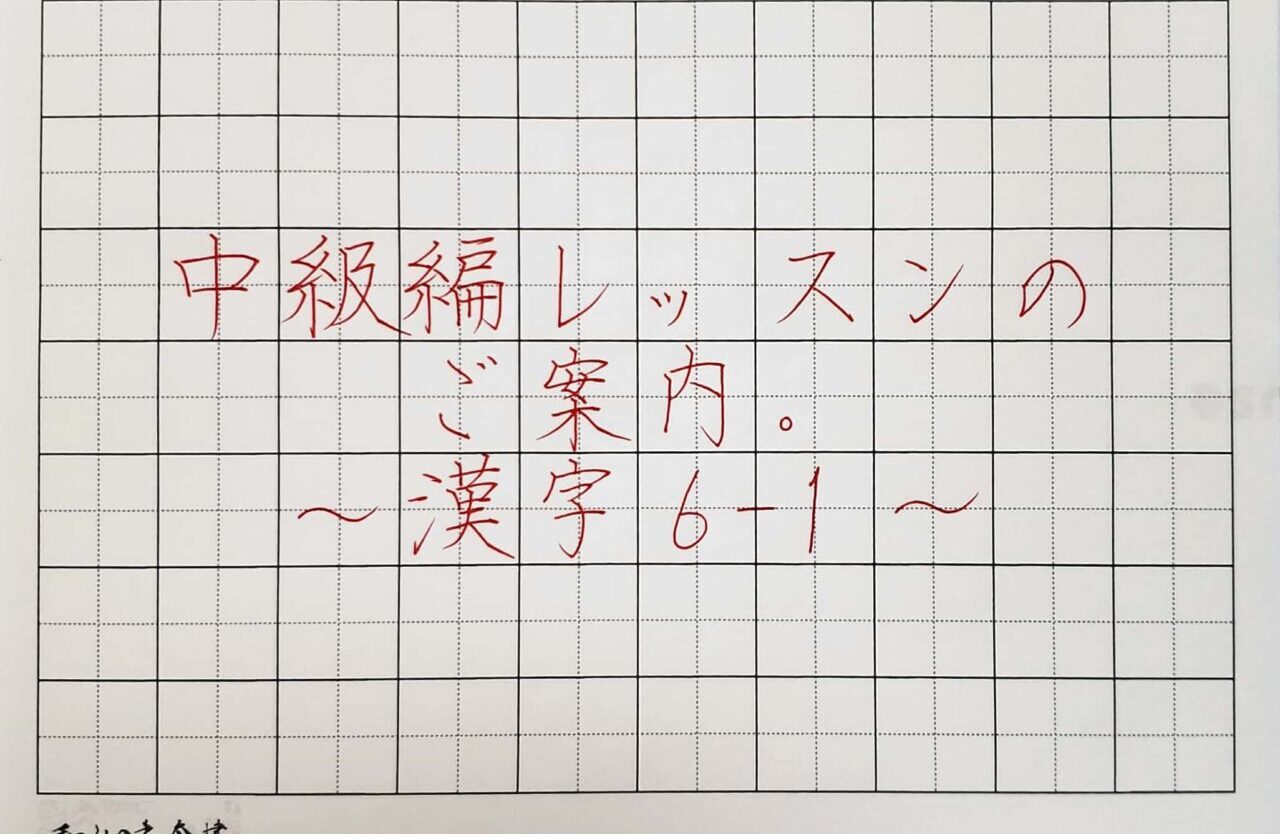 中級編レッスンの
ご案内。
〜漢字6-1〜